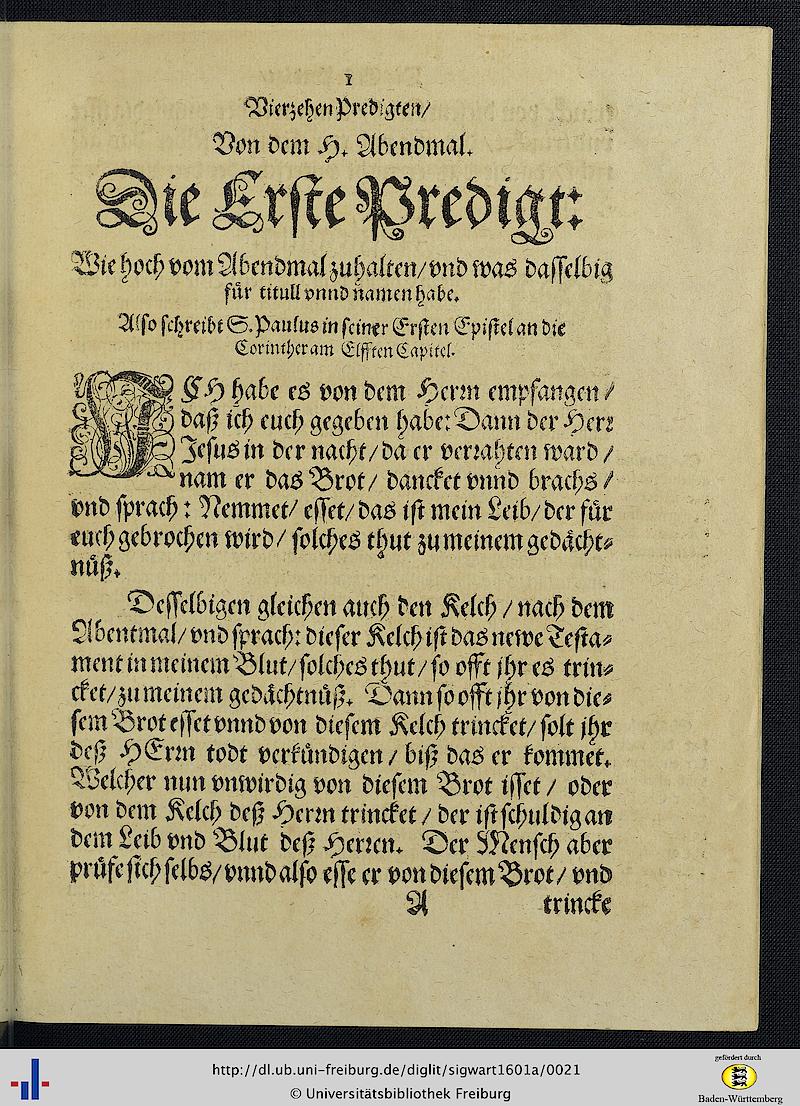 1
Vierzehen Predigten/
Von dem H. Abendmal.
Die Erste Predigt:
Wie hoch vom Abendmal zuhalten/ vnd was dasselbig
für titull vnnd namen habe.
Also schreibt S. Paulus in seiner Ersten Epistel an die
Corinther am Elfften Capitel.
ICH habe es von dem Herrn empfangen/
daß ich euch gegeben habe: Dann der Herr
Jesus in der nacht/ da er verrahten ward/
nam er das Brot/ dancket vnnd brachs/
vnd sprach: Nemmet/ esset/ das ist mein Leib/ der für
euch gebrochen wird/ solches thut zu meinem gedächt⸗
nüß.
Desselbigen gleichen auch den Kelch/ nach dem
Abentmal/ vnd sprach: dieser Kelch ist das newe Testa⸗
ment in meinem Blut/ solches thut/ so offt jhr es trin⸗
cket/ zu meinem gedächtnüß. Dann so offt jhr von die⸗
sem Brot esset vnnd von diesem Kelch trincket/ solt jhr
deß HErrn todt verkündigen/ biß das er kommet.
Welcher nun vnwirdig von diesem Brot isset/ oder
von dem Kelch deß Herrn trincket/ der ist schuldig an
dem Leib vnd Blut deß Herren. Der Mensch aber
prüfe sich selbs/ vnnd also esse er von diesem Brot/ vnd
A trincke
http://dl.ub.uni-freiburg.de/diglit/sigwart1601a/0021
© Universitätsbibliothek Freiburg
gefördert durch
Baden-Württemberg